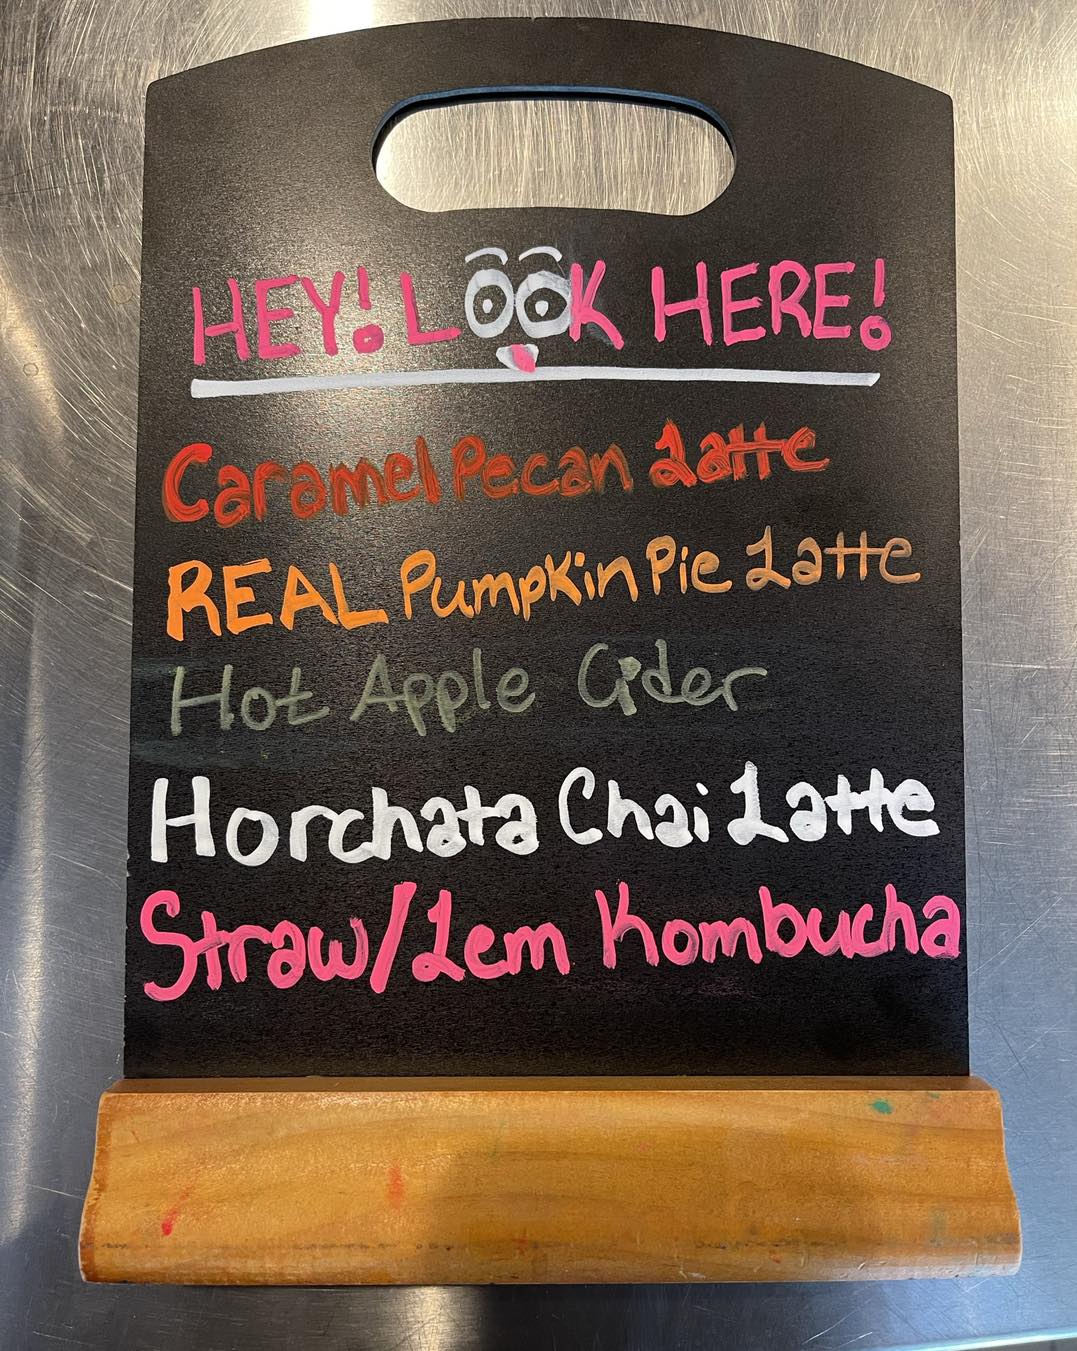 HEY! LOOK HERE!
Caramel Pecan Latte
REAL Pumpkin Pie Latte
Hot Apple Cider
Horchata Chai Latte
Straw/Lem Kombucha